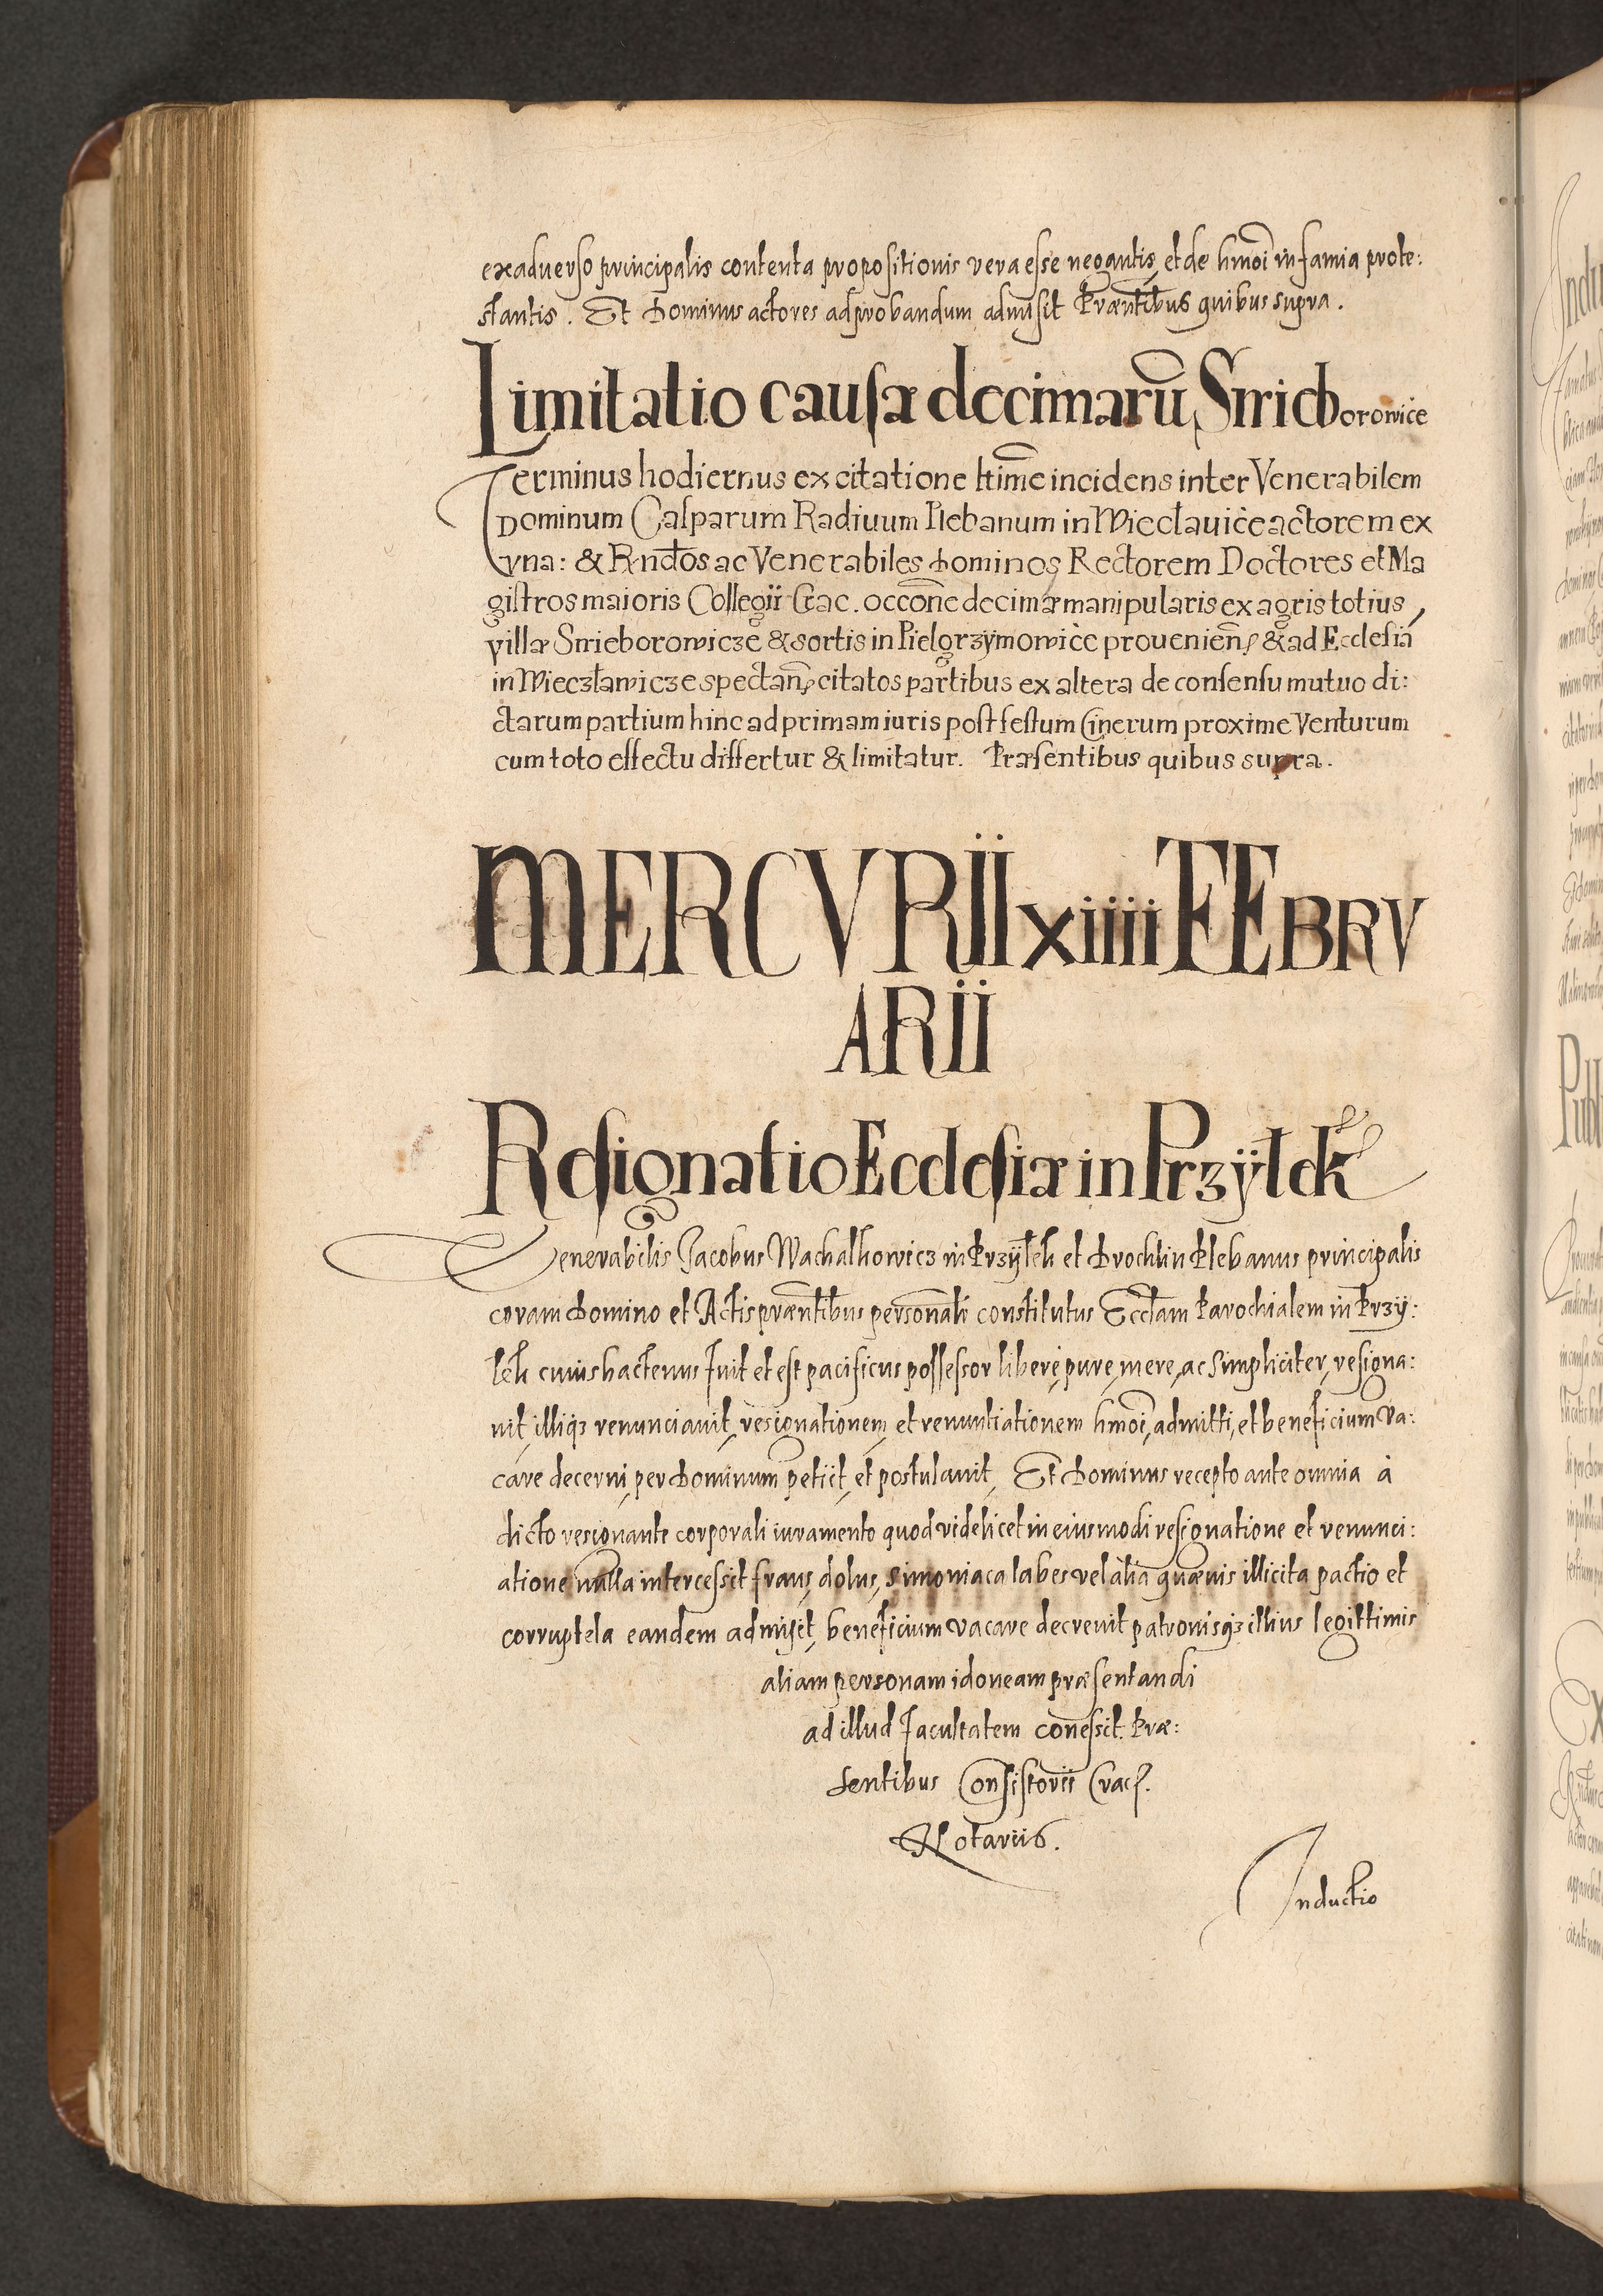 exaduerso principalis contenta propositionis vera esse negantis, et de hmõi infamia prote:
stantis. Et Dominus actores ad probandum admisit Præntibus quibus supra.
Limitatio causæ decimarũ Smieborowice
Terminus hodiernus ex citatione ltime incidens inter Venerabilem
Dominum Casparum Radiuum Plebanum in Wieclauice actorem ex
vna: & Rndos ac Venerabiles Dominos Rectorem Doctores et Ma
gistros maioris Collegii Crac. occõne decimæ manipularis ex agris totius
villæ Smieborowicze & sortis in Pielgrzymowice prouenien̄ & ad Ecclesiã
in Wieczławicze spectan̄ citatos partibus ex altera de consensu mutuo di:
ctarum partium hinc ad primam iuris post festum Cinerum proxime Venturum
cum toto effectu differtur & limitatur. Præsentibus quibus supra.
MERCVRII XIIII FEBRV
ARII
Resignatio Ecclesiæ in Przÿłek
Venerabilis Jacobus Wachalhowicz in Przÿłek et Drochlin Plebanus principalis
coram Domino et Actis præntibus personalr constitutus Ecclam Parochialem in Przÿ:
łek cuius hactenus fuit et est pacificus possessor libere, pure, mere, ac Simpliciter, resigna:
uit, illiqz renunciauit, resignationem, et renuntiationem hmõi, admitti, et beneficium va:
care decerni, per Dominum petiit, et postulauit, Et Dominus recepto ante omnia à
dicto resignante corporali iuramento quod videlicet in eiusmodi resignatione et renunci:
atione nulla intercessit fraus, dolus, simoniaca labes vel alia quæuis illicita pactio et
corruptela eandem admisit, beneficium vacare decreuit patronisqz illius legittimis
aliam personam idoneam præsentandi
ad illud facultatem conẽssit. Præ:
sentibus Consistorii Crac.
Notariis.
Inductio